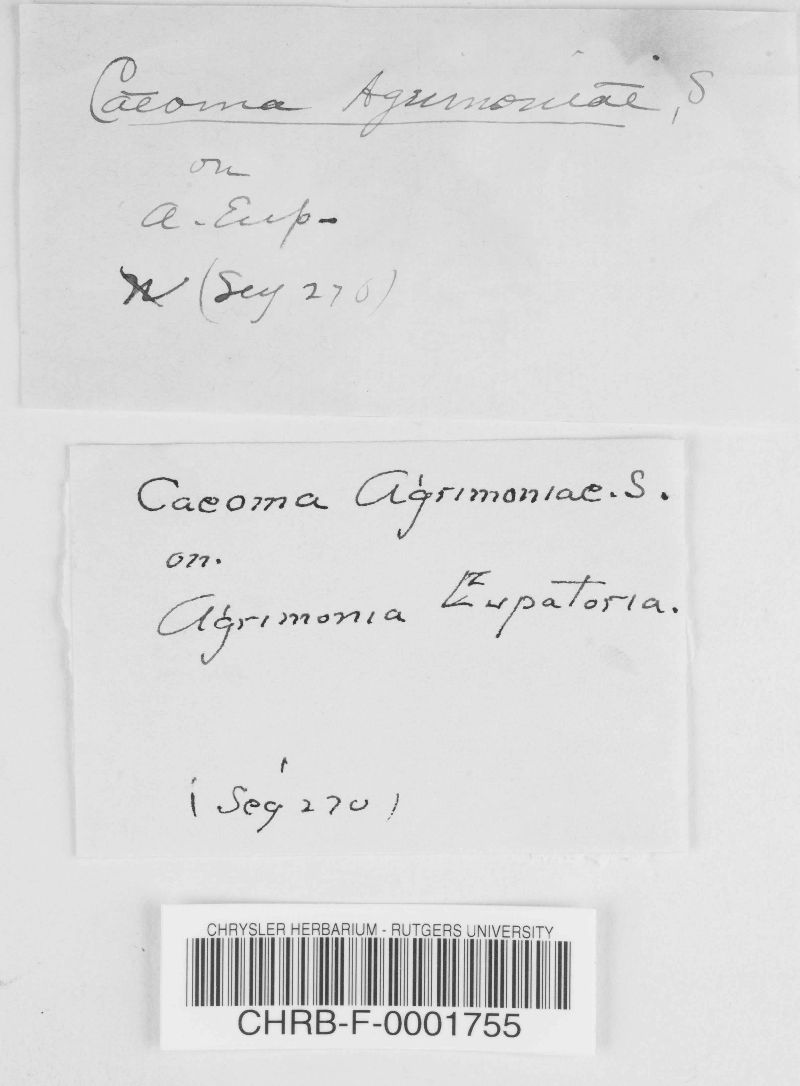 Caeoma Agrimoniae, S
on
A. Eup-
(Sey 270)
Caeoma Agrimoniae. S.
on.
Agrimonia Eupatoria.
(Seg 270)
CHRYSLER HERBARIUM - RUTGERS UNIVERSITY
CHRB-F-0001755